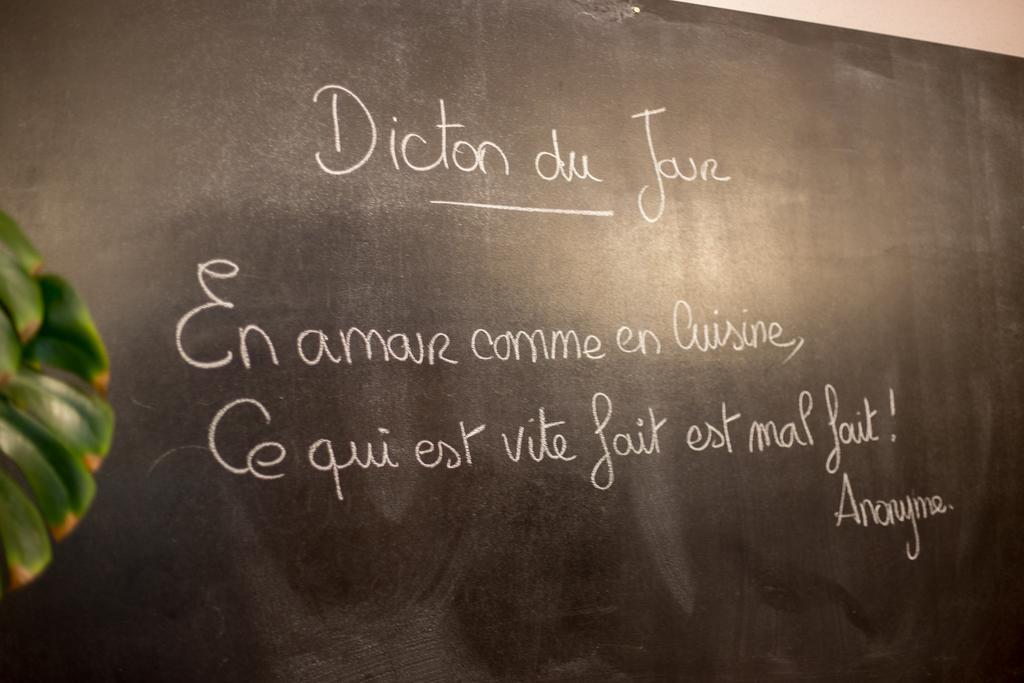 Dicton du Jour
En amour comme en Cuisine,
Ce qui est vite fait est mal fait !
Anonyme.